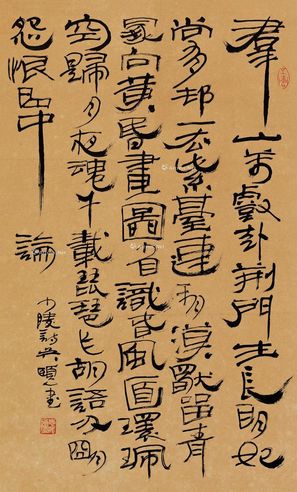 羣山萬壑赴荊門生長明妃
尚有邨一去紫臺連朔漠獨留青
冢向黃昏畫圖省識春風面環珮
空歸月夜魂千載琵琶乍胡語分朙
怨恨曲中論
少陵詩吳頤人書